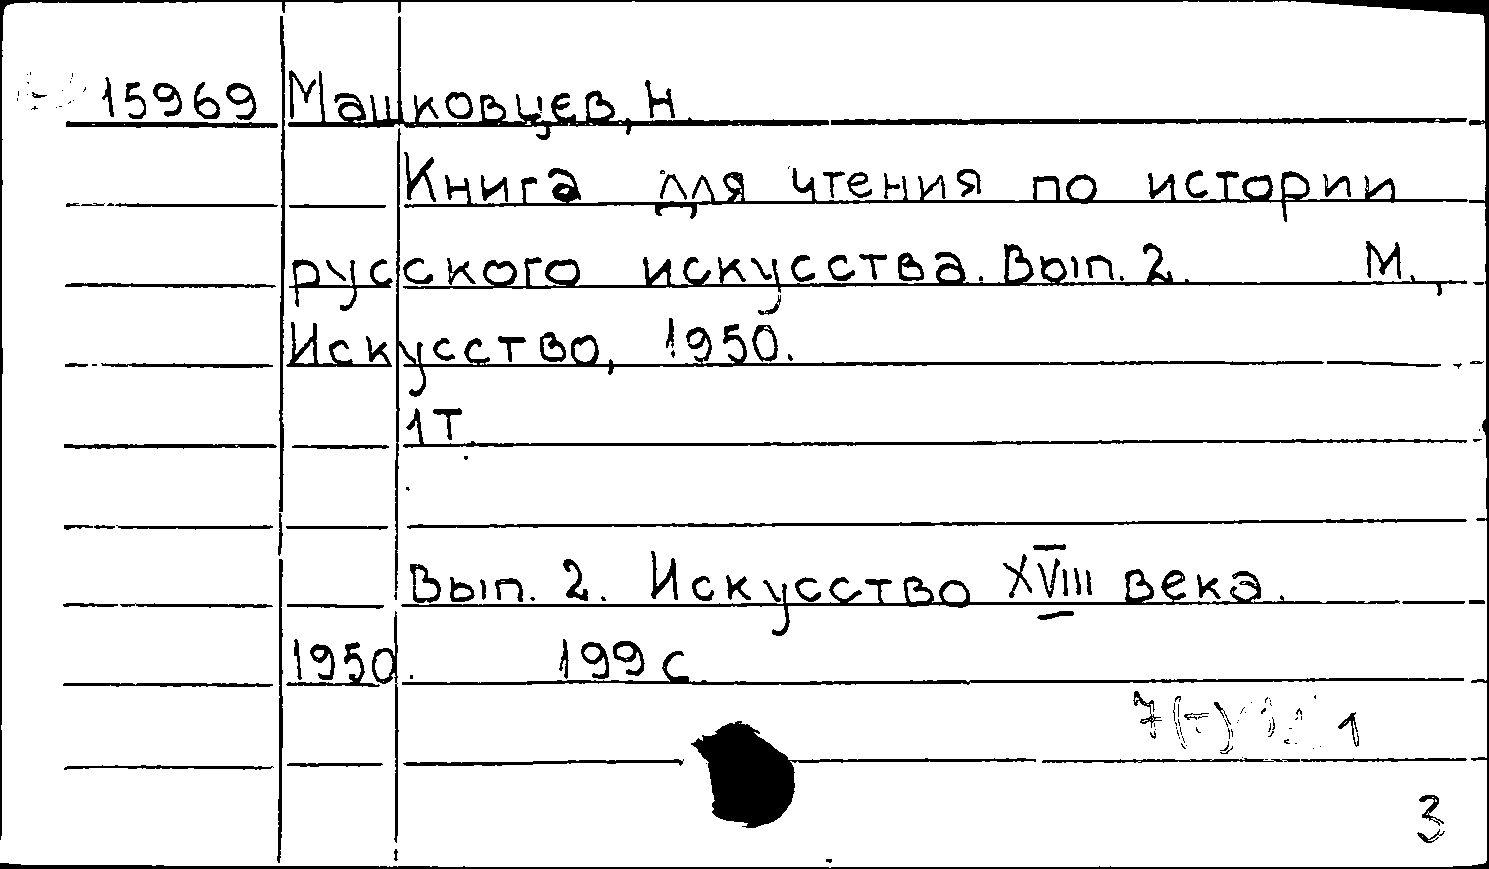 15969 Машковцев, Н.
Книга для чтения по истории
русского искусства. Вып. 2. М.,
Искусство, 1950.
1 т.
Вып. 2. Искусство XVIII века.
1950. 199 с.
3